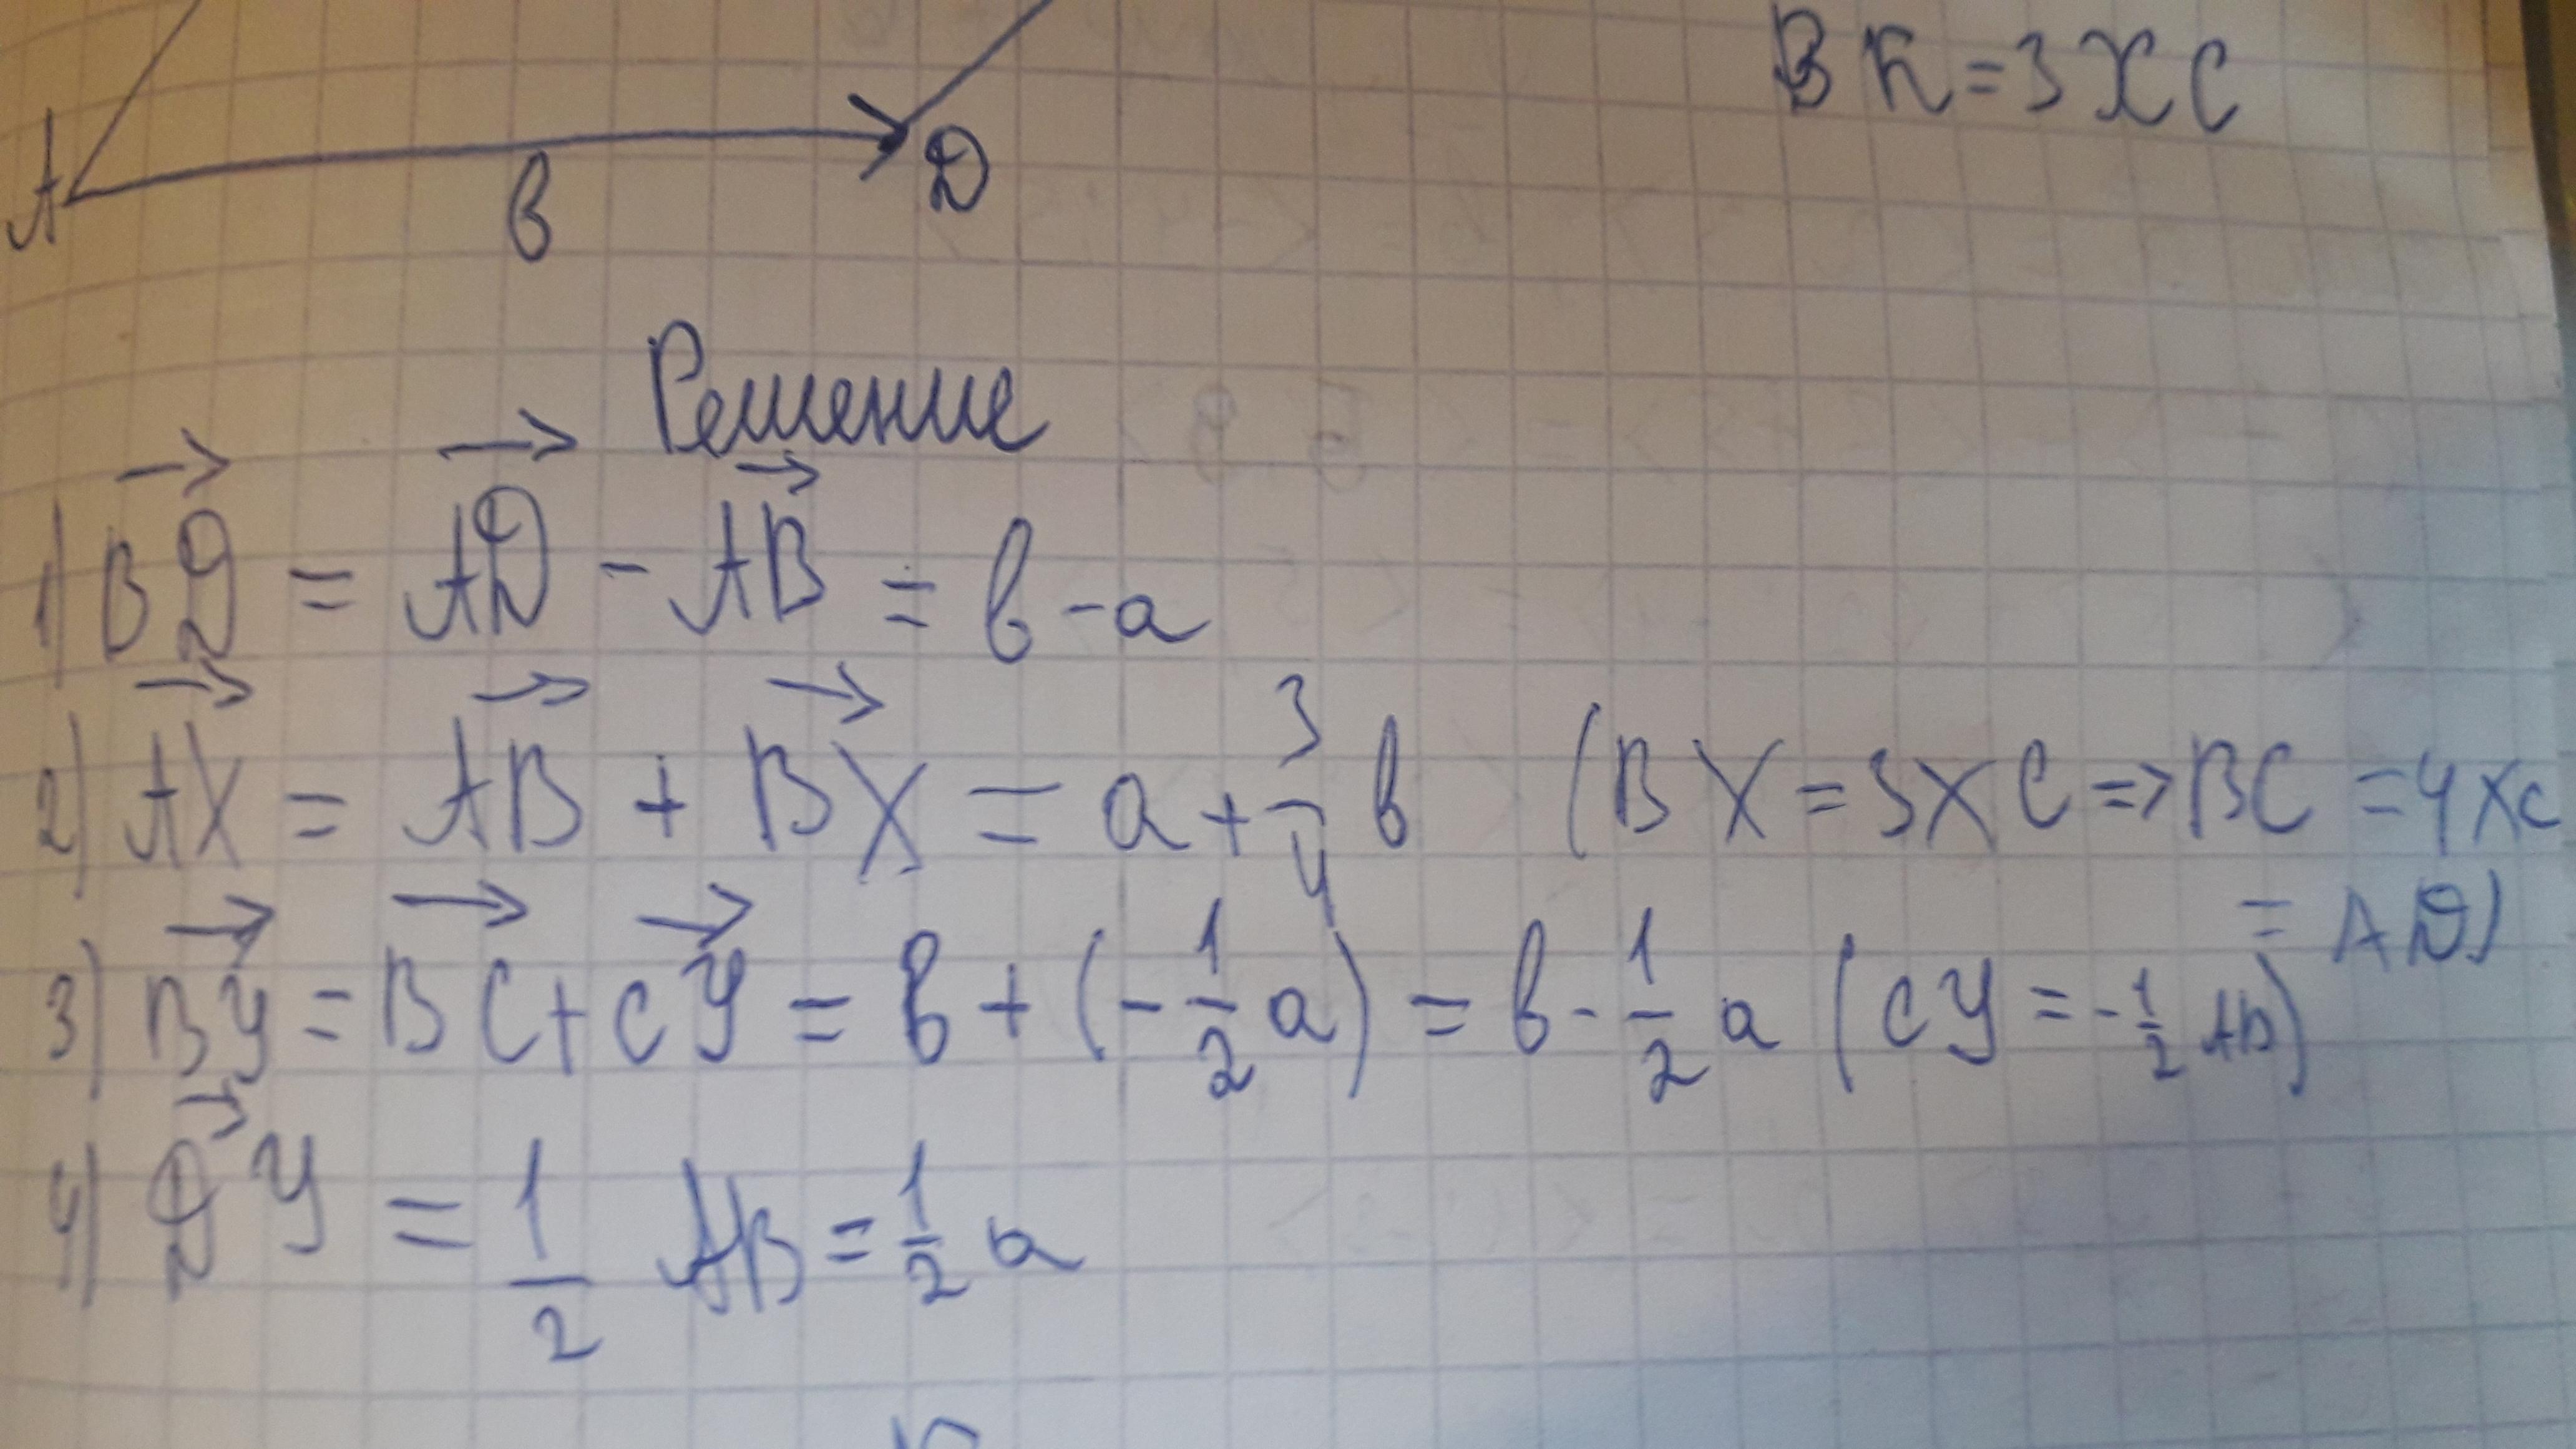 BK=3XC
A
D
b
Решение
1) BD = AD - AB = b - a
2) AX = AB + BX = a + 3/4 b (BX = 3XC => BC = 4XC
= AD)
3) BY = BC + CY = b + (-1/2 a) = b - 1/2 a (CY = -1/2 AB)
4) DY = 1/2 AB = 1/2 a